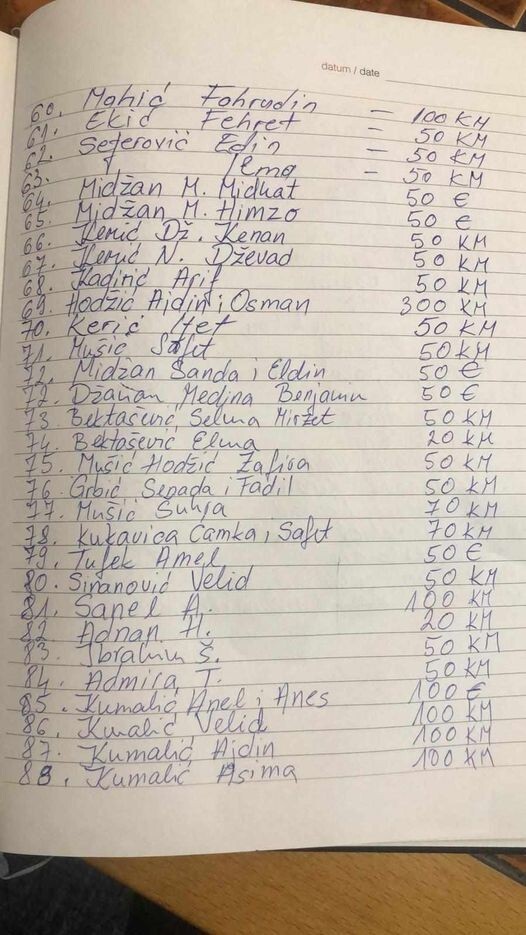 datum / date
60. Mahić Fahrudin - 100 KM
61. Ekić Fehret - 50 KM
62. Seferović Edin - 50 KM
63. Nema - 50 KM
64. Midžan M. Midhat 50 €
65. Midžan M. Himzo 50 €
66. Kemić Dž. Kenan 50 KM
67. Kemić N. Dževad 50 KM
68. Kadirić Arif 50 KM
69. Hodžić Ajdin i Osman 300 KM
70. Kerić 50 KM
71. Mušić Saft 50 KM
72. Midžan Sanda i Eldin 50 €
72. Džanan Medina Benjamin 50 €
73. Bektašević Selma Mirzet 50 KM
74. Bektošević Elma 20 KM
75. Mušić Hodžić 50 KM
76. Grbić Senada i Fadil 50 KM
77. Mušić Suhra 70 KM
78. Kukavica Ćamka i Saft 70 KM
79. Tufek Amel 50 €
80. Sinanović Velid 50 KM
81. Sanel A. 100 KM
82. Adnan H. 20 KM
83. Ibrahim Š. 50 KM
84. Admira T. 50 KM
85. Kumalić Anel i Anes 100 €
86. Kmalić Velid 100 KM
87. Kumalić Ajdin 100 KM
88. Kumalić Asima 100 KM